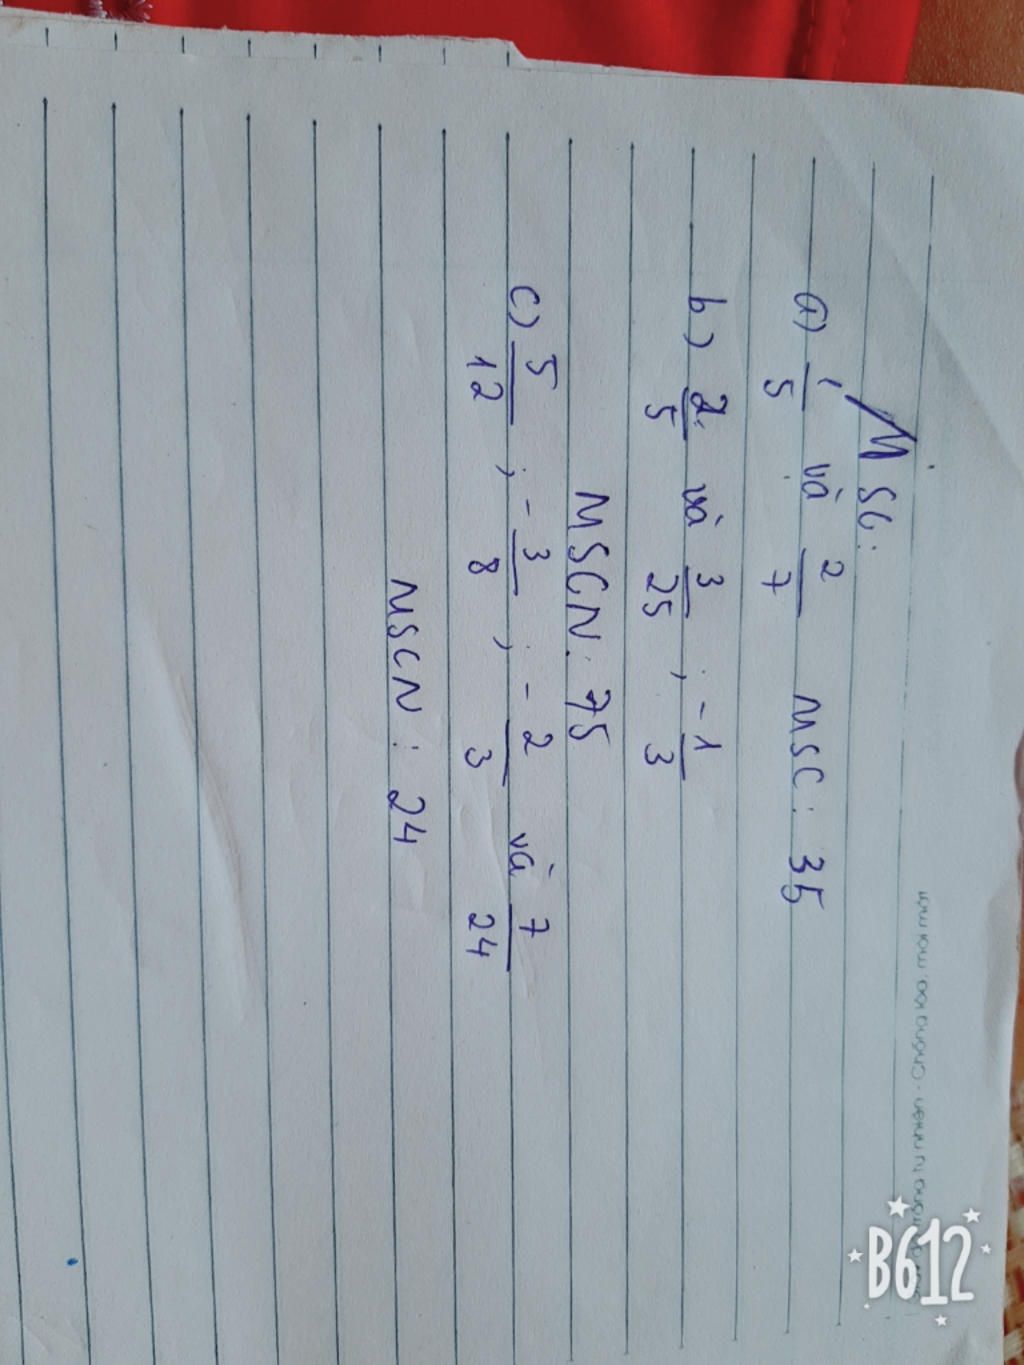 MSC:
a) 1/5 và 2/7 MSC: 35
b) 2/5 và 3/25 ; -1/3
MSCN: 75
c) 5/12 ; -3/8 ; -2/3 và 7/24
MSCN: 24
B612